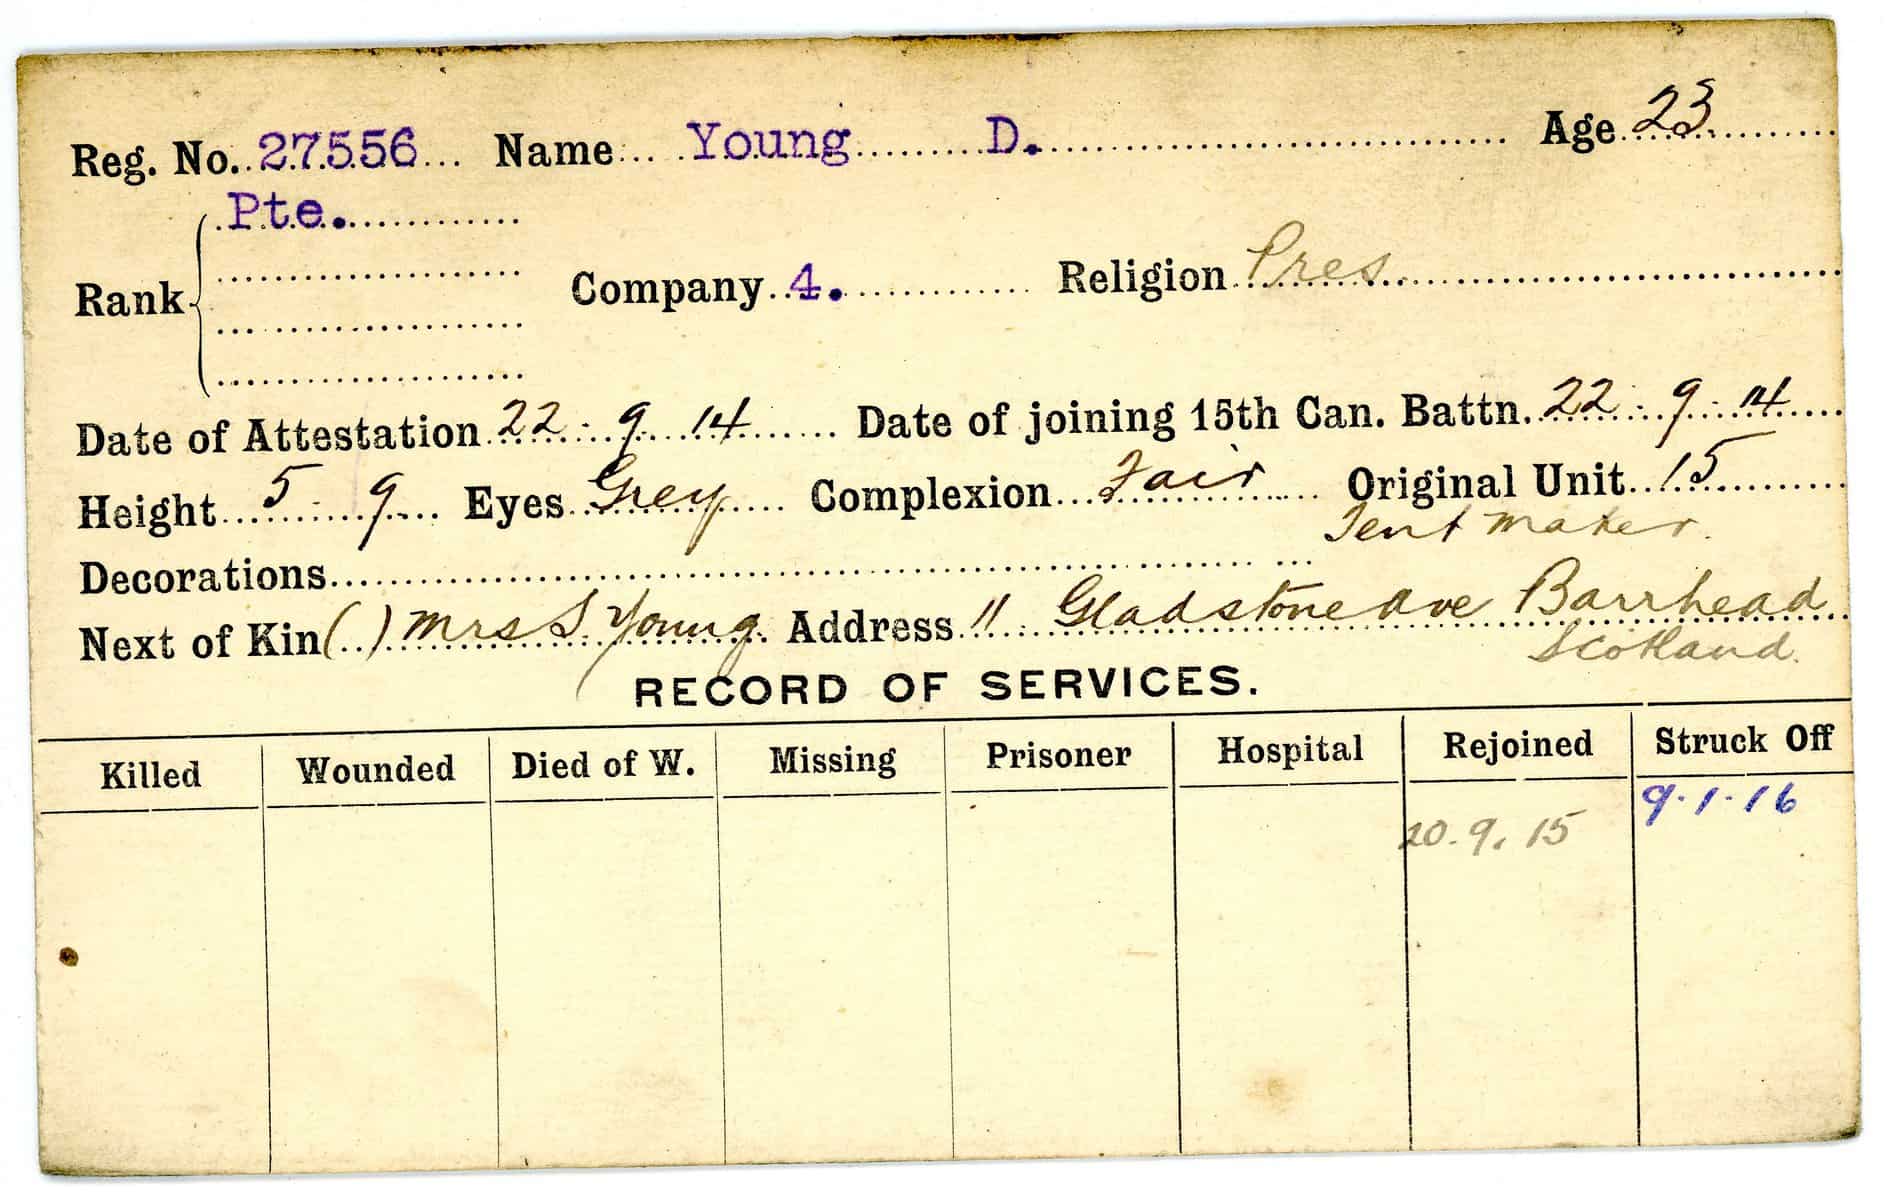 Reg. No. 27556 Name Young D. Age 23
Pte.
Rank Company 4. Religion Pres.
Date of Attestation 22-9-14 Date of joining 15th Can. Battn. 22-9-14
Height 5-9 Eyes Grey Complexion Fair Original Unit 15
Tent maker.
Decorations
Next of Kin ( ) Mrs S. Young. Address 11 Gladstone Ave Barrhead
Scotland.
RECORD OF SERVICES.
Killed Wounded Died of W. Missing Prisoner Hospital Rejoined Struck Off
9.1.16
20.9.15